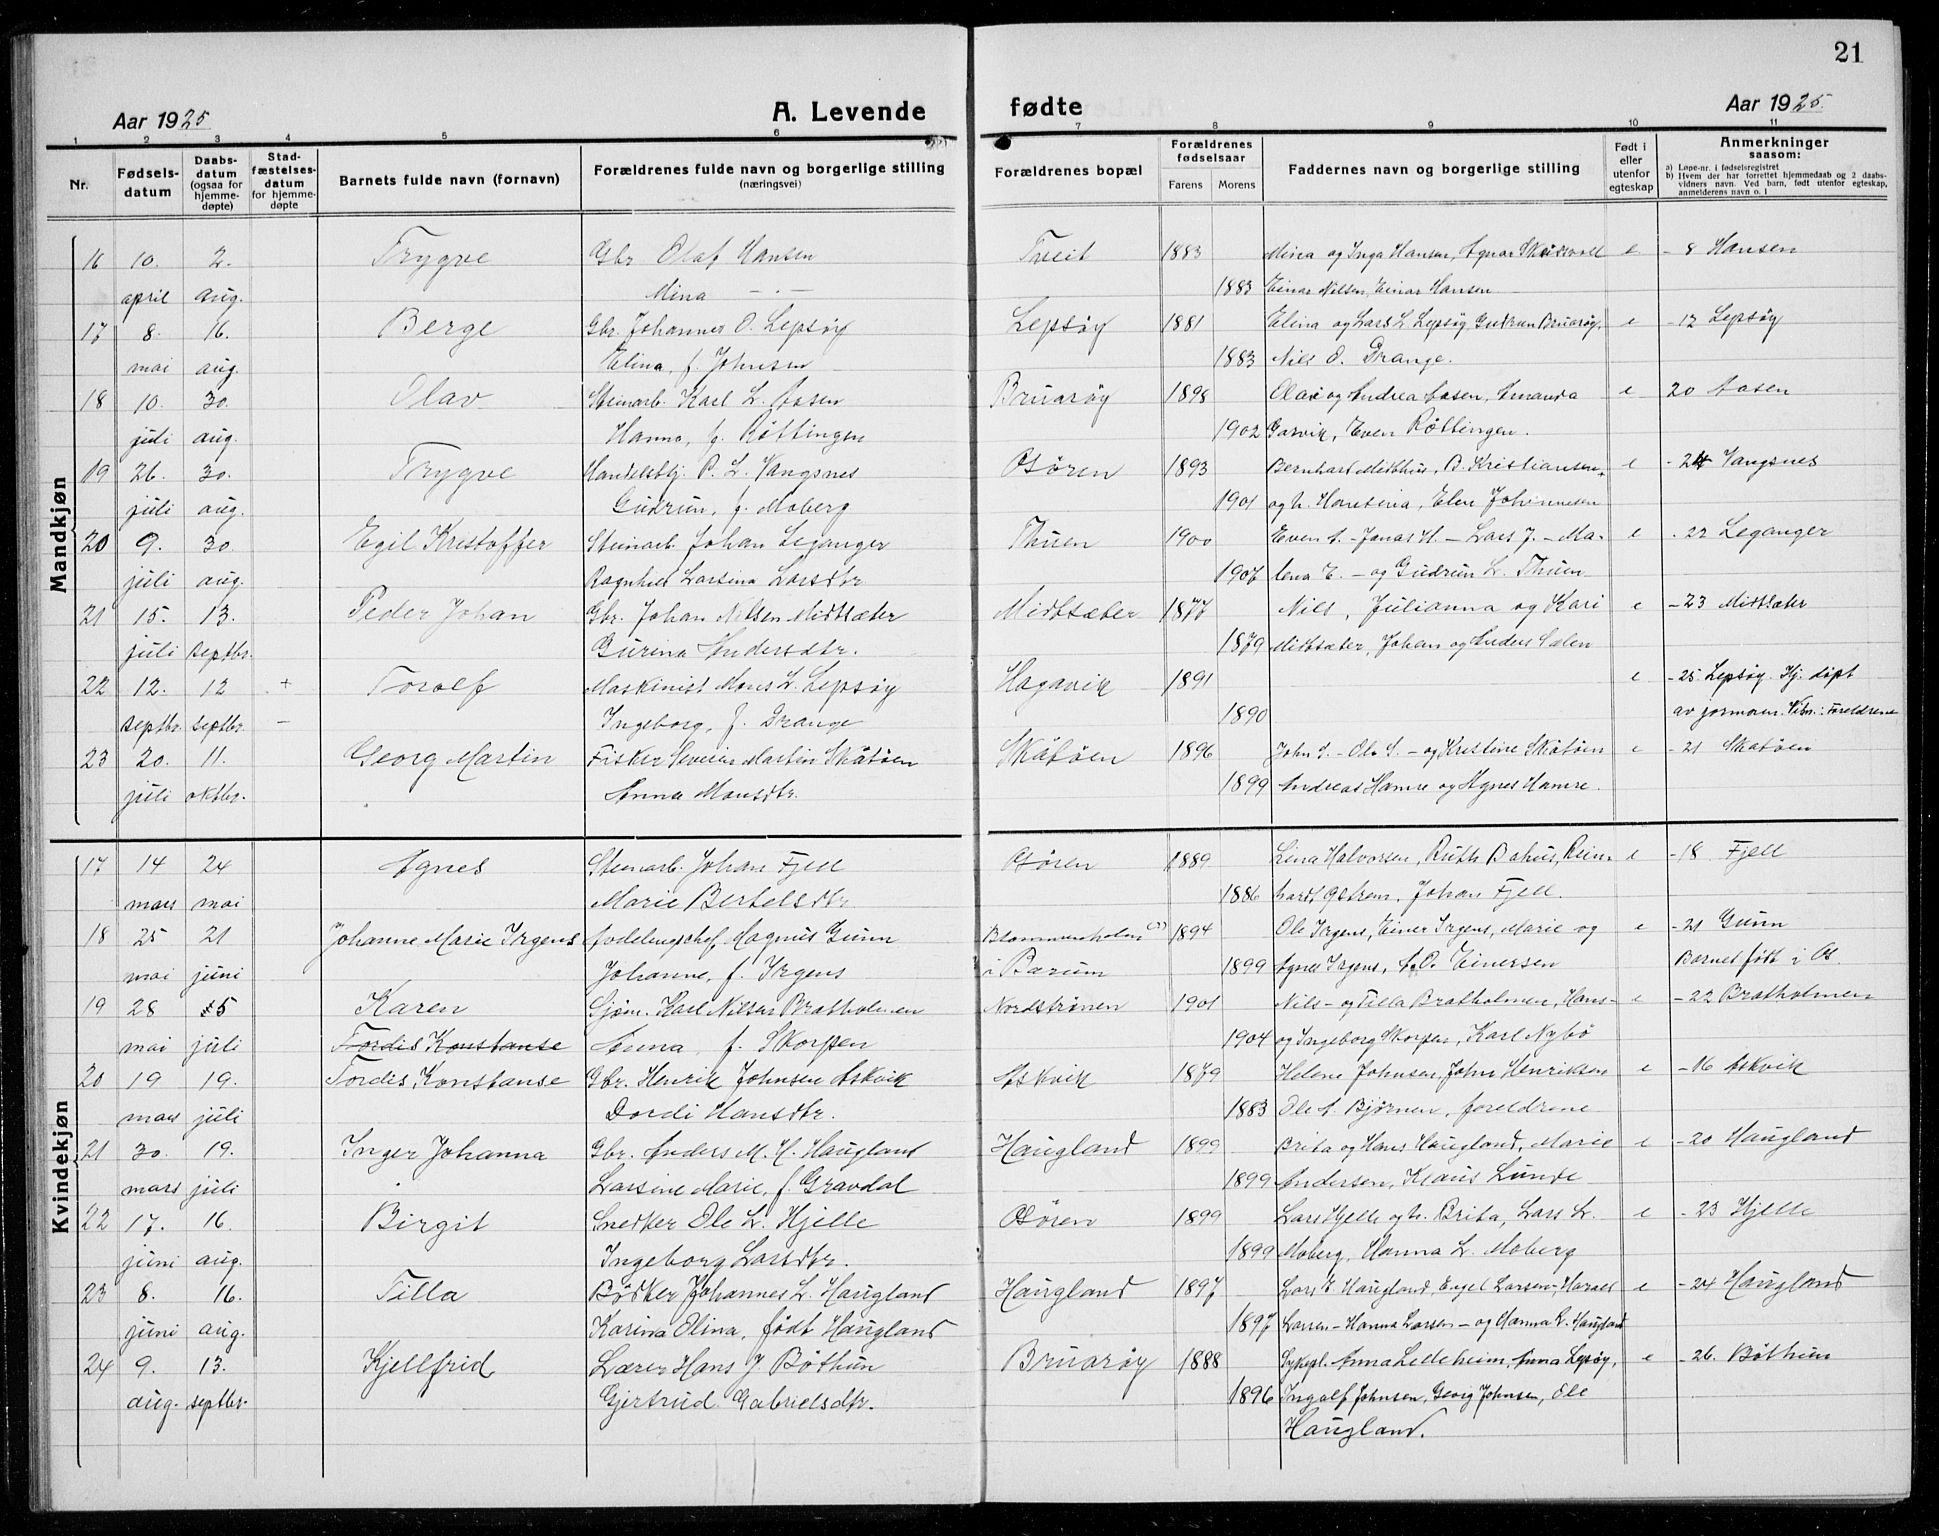 21
Aar 1925 A. Levende fødte Aar 1925
1 2 3 4 5 6 7 8 9 10 11
Nr. Fødsels-datum Daabs-datum (ogsaa for hjemme-døpte) Stad-fæstelses-datum for hjemme-døpte Barnets fulde navn (fornavn) Forældrenes fulde navn og borgerlige stilling (næringsvei) Forældrenes bopæl Forældrenes fødselsaar Farens Morens Faddernes navn og borgerlige stilling Født i eller utenfor egteskap Anmerkninger saasom:
a) Løpe-nr. i fødselsregistret
b) Hvem der har forrettet hjemmedaab og 2 daabs-vidners navn. Ved barn, født utenfor egteskap, anmelderens navn o. l
Mandkjøn
16 10. 2. Trygve Gbr Olaf Hansen Tveit 1883 Mina og Inga Hansen, Agnar e - 8 Hansen
april aug. Mina - " - 1883 Einar Nilsen, Einar Hansen
17 8. 16. Berge Gbr. Johannes O. Lepsøy Lepsøy 1881 Elina og Lars L Lepsøy, Gudrun Bruarøy, e - 12 Lepsøy
mai aug. Elina, f. Johnsen 1883 Nils O. Drange.
18 10. 30. Olav Steinarb. Karl L. Aasen Bruarøy 1898 Olai og Andrea Aasen, Amanda e 20 Aasen
juli aug. Hanna, f. Røttingen 1902 Gasvik, Even Røttingen.
19 26. 30. Trygve Handelsbtj. P. L. Vangsnes Osøren 1893 Bernhart Midthus, B. Kristiansen- e - 24 Vangsnes
juli aug. Gudrun, f. Moberg 1901 og h. Hansina, Elen Johannesen
20 9. 30 Egil Kristoffer Steinarb. Johan Leganger Thuen 1900 Even A. - Jonas H. - Lars J. - Ma- e - 22 Leganger
juli aug. Ragnhild Larsina Larsdtr 1907 lena E. - og Gudrun L. Thuen
21 15. 13. Peder Johan Gbr. Johan Nilsen Midtsæter Midtsæter 1877 Nils, Julianna og Kari e - 23 Midtsæter
juli septbr. Gurina Andersdtr. 1879 Midtsæter, Johan og Anders Sælen
22 12. 12 + Torolf Maskinist Mons L. Lepsøy Hagavik 1891 e - 25 Lepsøy. Hj. døpt
septbr. septbr. - Ingeborg, f. Drange 1890 av jormoren. Vitn.: Foreldrene
23 20. 11. Georg Martin Fisker Severin Martin Skåtøen Skåtøen 1896 John S. - Ole S. - og Kristine Skåtøen e - 21 Skatøen
juli oktbr. Anna Monsdtr. 1899 Andreas Hamre og Agnes Hamre.
Kvindekjøn
17 14 24 Agnes Steinarb. Johan Fjell Osøren 1889 Lina Halvorsen, Ruth Bahus, Rein- e - 18 Fjell
mars mai Marie Bertelsdtr. 1886 hardt Østrem, Johan Fjell.
18 25 21 Johanne Marie Irgens Avdelingschef, Magnus Gunn Blommenholm 1894 Ole Irgens, Einar Irgens, Marie og e - 21 Gunn
mai juni Johanne, f. Irgens i Bærum 1899 Agnes Irgens, A. O. Einersen Barnet født i Os
19 28 5 Karen Sjøm. Karl Nilsen Bratholmen Nordstrønen 1901 Nils - og Tilla Bratholmen, Hans- e - 22 Bratholmen
mai juli Tordis Konstanse Anna, f. Skorpen 1904 og Ingeborg Skorpen, Karl Nybø
20 19 19. Tordis Konstanse Gbr. Henrik Johnsen Askvik Askvik 1879 Helene Johnsen, John Henriksen e - 16 Askvik
mars juli Dordi Hansdtr. 1883 Ole A. Bjørnen, foreldrene
21 30. 19. Inger Johanna Gbr. Anders M. H. Haugland Haugland 1899 Brita og Hans Haugland, Marie e - 20 Haugland
mars juli Larsine Marie, f. Gravdal 1899 Andersen, Klaus Lunde
22 17. 16. Birgit Snedker Ole L. Hjelle Osøren 1899 Lars Hjelle og h. Brita, Lars L. e - 23 Hjelle
juni aug. Ingeborg Larsdtr. 1899 Moberg, Hanna L. Moberg
23 8. 16. Tilla Bødker Johannes L. Haugland Haugland 1897 Lars E Haugland, Engel Larsen- Harald e - 24 Haugland
juni aug. Karina Olina, født Haugland 1897 Larsen - Hanna Larsen - og Hanna L. Haugland
24 9. 13. Kjellfrid Lærer Hans J. Bøthun Bruarøy 1888 Sykepl. Anna Lilleheim, Anna Lepsøy, e - 26. Bøthun
aug. septbr. Gjertrud Gabrielsdtr. 1896 Ingolf Johnsen, Georg Johnsen, Ole
Haugland.